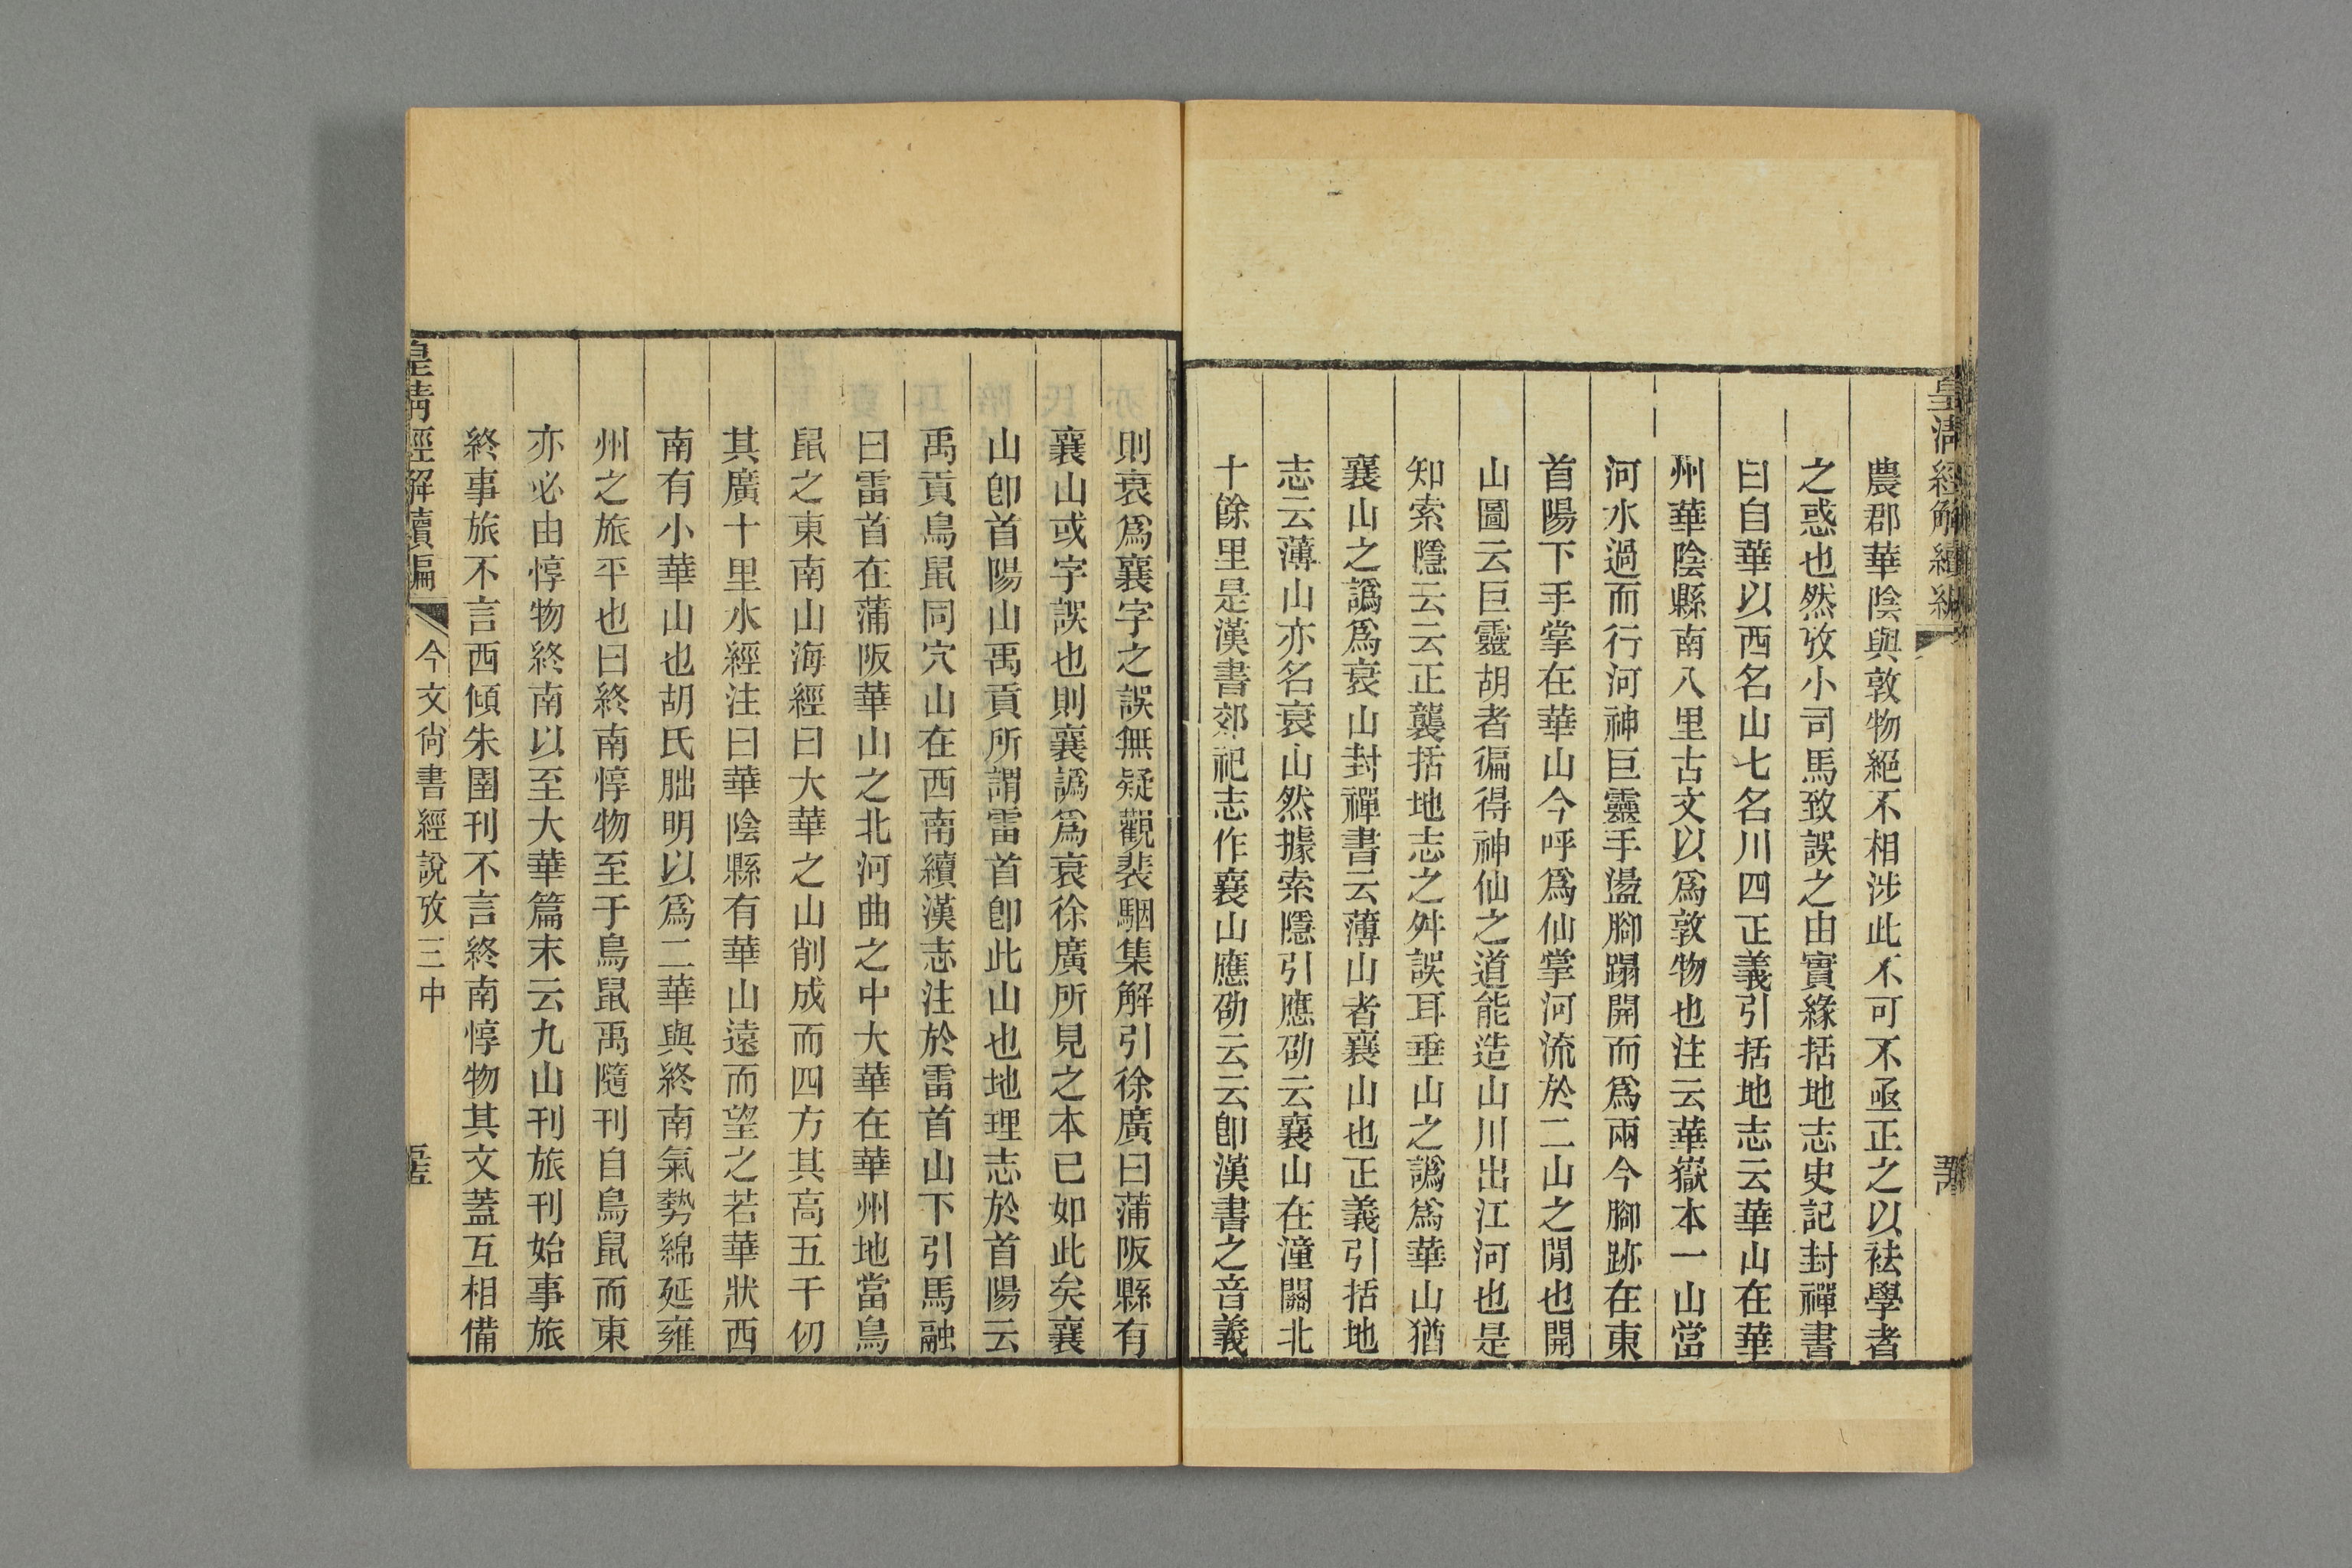 皇清經解續編
農郡華陰與敦物絕不相涉此不可不亟正之以袪學者
之惑也然攷小司馬致誤之由實緣括地志史記封禪書
曰自華以西名山七名川四正義引括地志云華山在華
州華陰縣南八里古文以爲敦物也注云華嶽本一山當
河水過而行河神巨靈手盪腳蹋開而爲兩今腳跡在東
首陽下手掌在華山今呼爲仙掌河流於二山之閒也開
山圖云巨靈胡者徧得神仙之道能造山川出江河也是
知索隱云云正襲括地志之舛誤耳垂山之譌爲華山猶
襄山之譌爲衰山封禪書云薄山者襄山也正義引括地
志云薄山亦名衰山然據索隱引應劭云襄山在潼關北
十餘里是漢書郊祀志作襄山應劭云云卽漢書之音義
則衰爲襄字之誤無疑觀裴駰集解引徐廣曰蒲阪縣有
襄山或字誤也則襄譌爲衰徐廣所見之本已如此矣襄
山卽首陽山禹貢所謂雷首卽此山也地理志於首陽云
禹貢鳥鼠同穴山在西南續漢志注於雷首山下引馬融
曰雷首在蒲阪華山之北河曲之中大華在華州地當鳥
鼠之東南山海經曰大華之山削成而四方其高五千仞
其廣十里水經注曰華陰縣有華山遠而望之若華狀西
南有小華山也胡氏朏明以爲二華與終南氣勢綿延雍
州之旅平也曰終南惇物至于鳥鼠禹隨刊自鳥鼠而東
亦必由惇物終南以至大華篇末云九山刊旅刊始事旅
終事旅不言西傾朱圉刊不言終南惇物其文蓋互相備
皇清經解續編 今文尙書經說攷三中